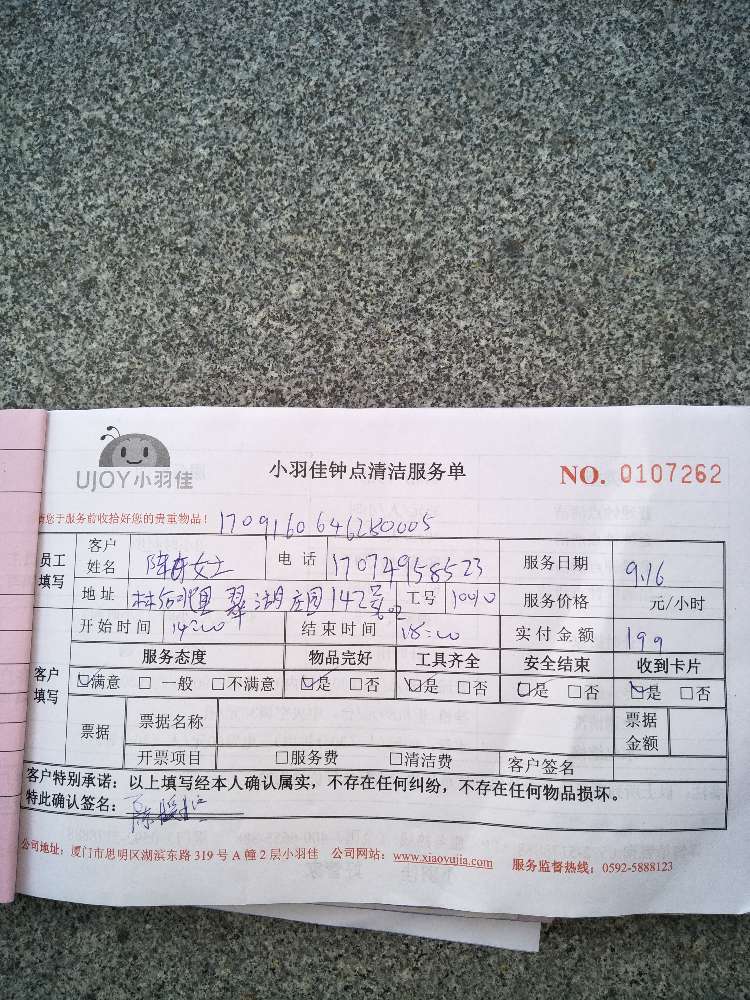 UJOY小羽佳 小羽佳钟点清洁服务单 NO. 0107262
请您于服务前收拾好您的贵重物品! 170916064628005
员工填写 客户姓名 女士 电话 17074958523 服务日期 9.16
地址 湖庄园142号 工号 10010 服务价格 元/小时
客户填写 开始时间 14:00 结束时间 18:00 实付金额 199
服务态度 物品完好 工具齐全 安全结束 收到卡片
☑满意 □ 一般 □不满意 ☑是 □否 ☑是 □否 ☑是 □否 ☑是 □否
票据 票据名称 票据金额
开票项目 □服务费 □清洁费 客户签名
客户特别承诺:以上填写经本人确认属实,不存在任何纠纷,不存在任何物品损坏。
特此确认签名:
公司地址:厦门市思明区湖滨东路 319 号 A 幢 2 层小羽佳 公司网站:www.xiaoyujia.com 服务监督热线:0592-5888123